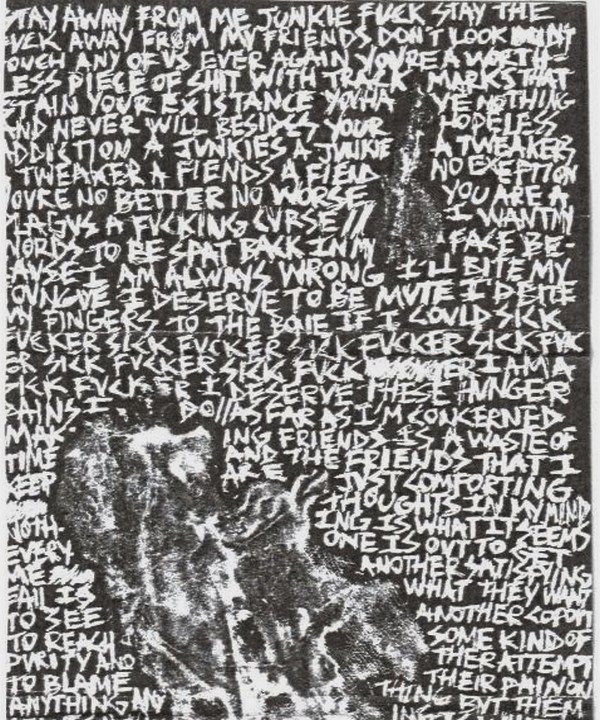 STAY AWAY FROM ME JUNKIE FUCK STAY THE
FUCK AWAY FROM MY FRIENDS DON'T LOOK
OUCH ANY OF US EVER AGAIN YOU'RE A WORTH-
ESS PIECE OF SHIT WITH TRACK MARKS THAT
STAIN YOUR EXISTANCE YOU HA VE NOTHING
AND NEVER WILL BESIDES YOUR HOPELESS
ADDICTION A JUNKIES A JUNKIE A TWEAKERS
TWEAKER A FIENDS A FIEND NO EXCEPTION
YOURE NO BETTER NO WORSE YOU ARE A
PLAGUS A FUCKING CURSE // I WANT MY
WORDS TO BE SPAT BACK IN MY FACE BE-
AUSE I AM ALWAYS WRONG I'LL BITE MY
I DESERVE TO BE MUTE I'D BITE
MY FINGERS TO THE BONE IF I COULD SICK
FUCKER SICK FUCKER SICK FUCKER SICK FUK
ER SICK FUCKER SICK FUCK ER I AM A
SICK FUCKER I DESERVE THESE HUNGER
PAINS I DO // AS FAR AS I'M CONCERNED
MAK ING FRIENDS IS A WASTE OF
TIME AND THE FRIENDS THAT I
KEEP ARE JUST COMFORTING
THOUGHTS IN MY MIND
NOTH- ING IS WHAT IT SEEMS
EVERY ONE IS OUT TO GET
ME ANOTHER SATISFYING
FALL IS WHAT THEY WANT
TO SEE ANOTHER COP OUT
TO REACH SOME KIND OF
PURITY AND THER ATTEMPT
TO BLAME THEIR PAIN ON
ANYTHING THING BUT THEM